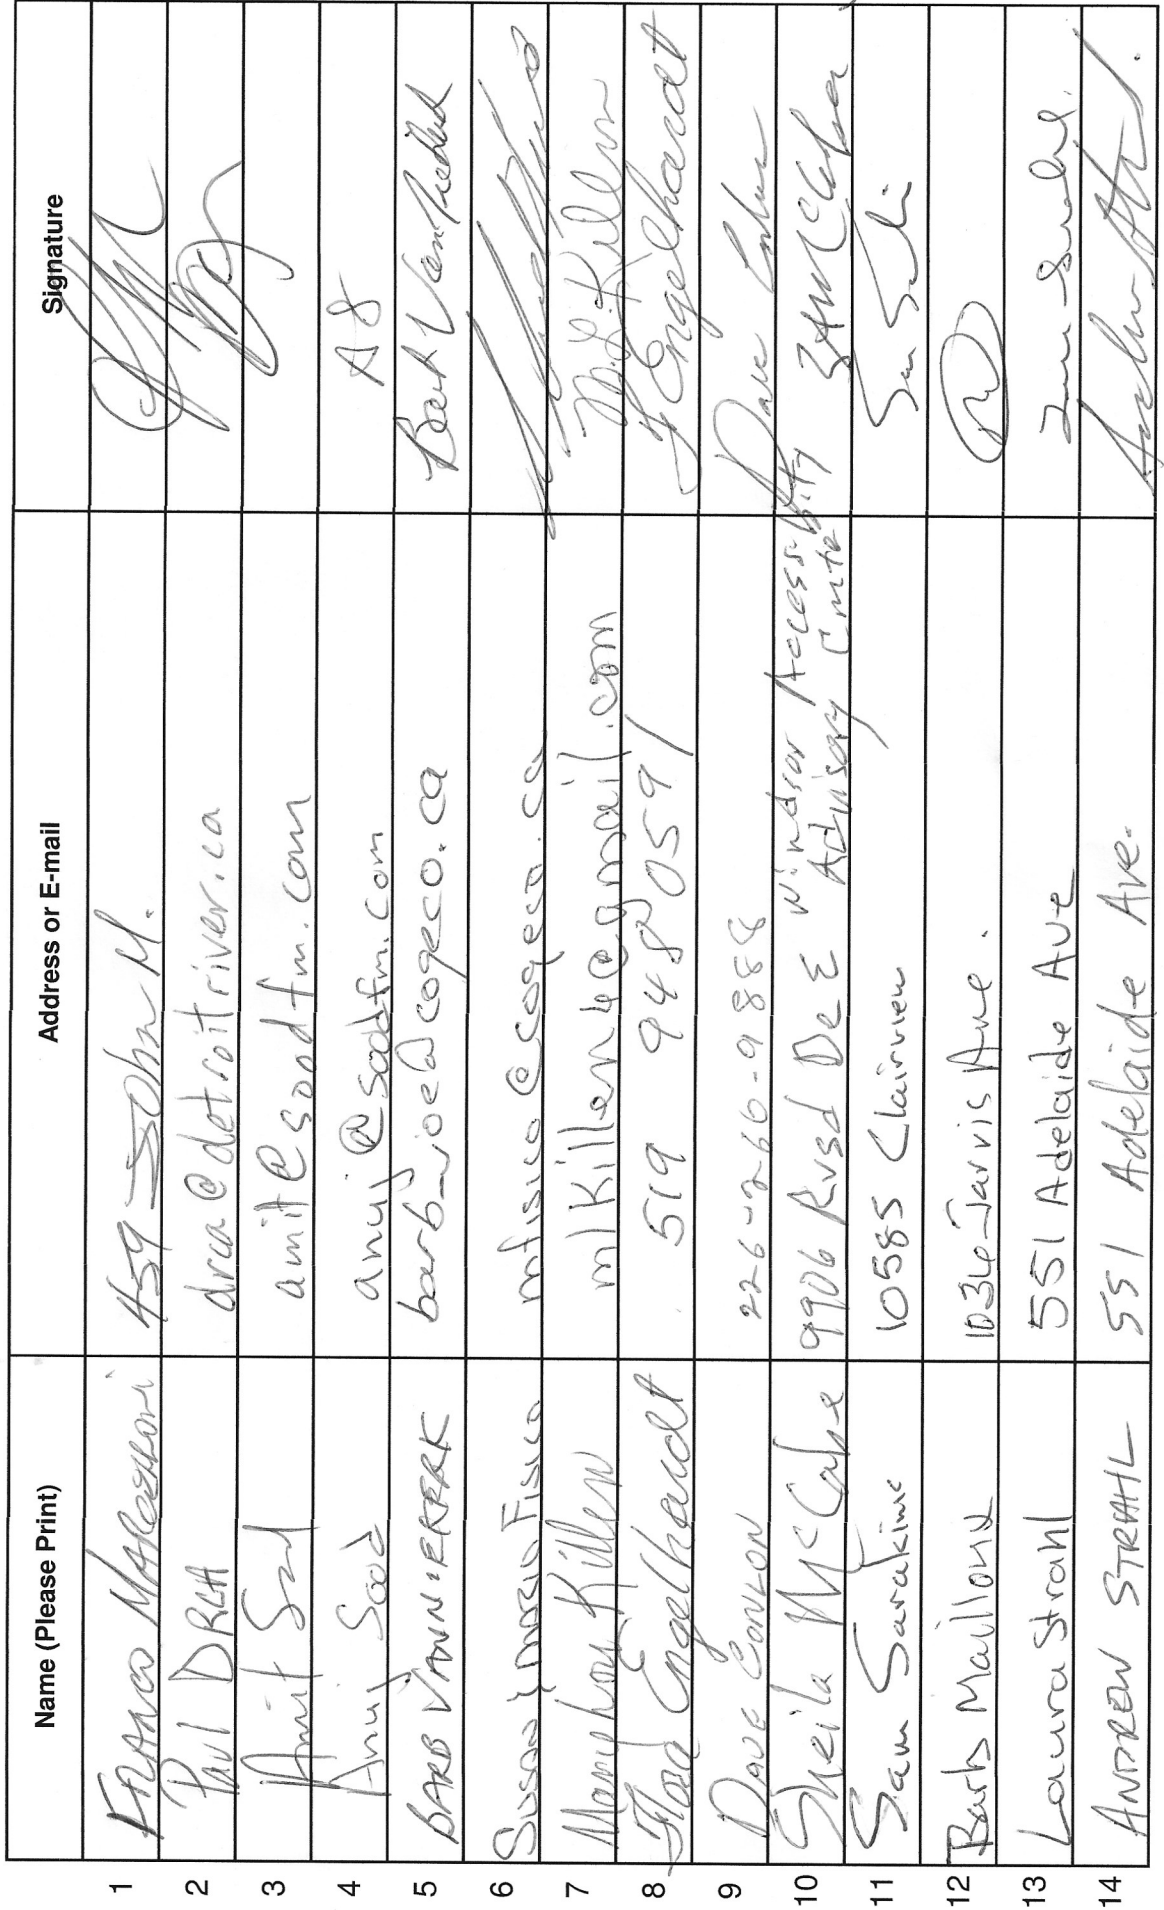 Name (Please Print) Address or E-mail Signature
1 FRANCO 459 John M.
2 Paul DRCA drca@detroitriver.ca
3 Amit Sood amit@soodfm.com
4 Anuj Sood anuj@soodfm.com AS
5 BARB VANNIERERK barb_joe@cogeco.ca
6 Susan & MARIO Fisico mfisico@cogeco.ca
7 Marylou Killen mlkillen4@gmail.com M. L. Killen
8 Engelhardt 519 948 0591 Engelhardt
9 DAVE CONLON 226-266-9888 Dave Conlon
10 Sheila McCabe 9906 Rvsd Dr E Windsor Accessibility
Advisory Cmte McCabe
11 Sam Sarakinis 10585 Clairview
12 Barb Mailloux 1036 Jarvis Ave.
13 Laura Strahl 551 Adelaide Ave
14 ANDREW STRAHL 551 Adelaide Ave.